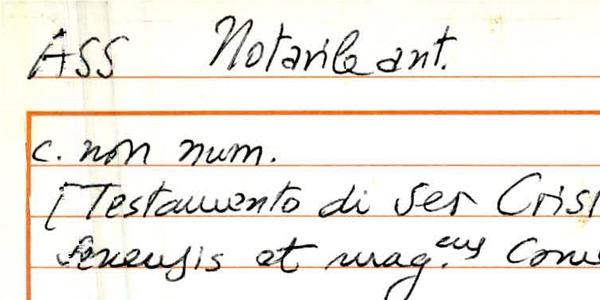 ASS Notarile ant.
c. non num.
[Testamento di Ser Cris
Senensis et mag.cus Com